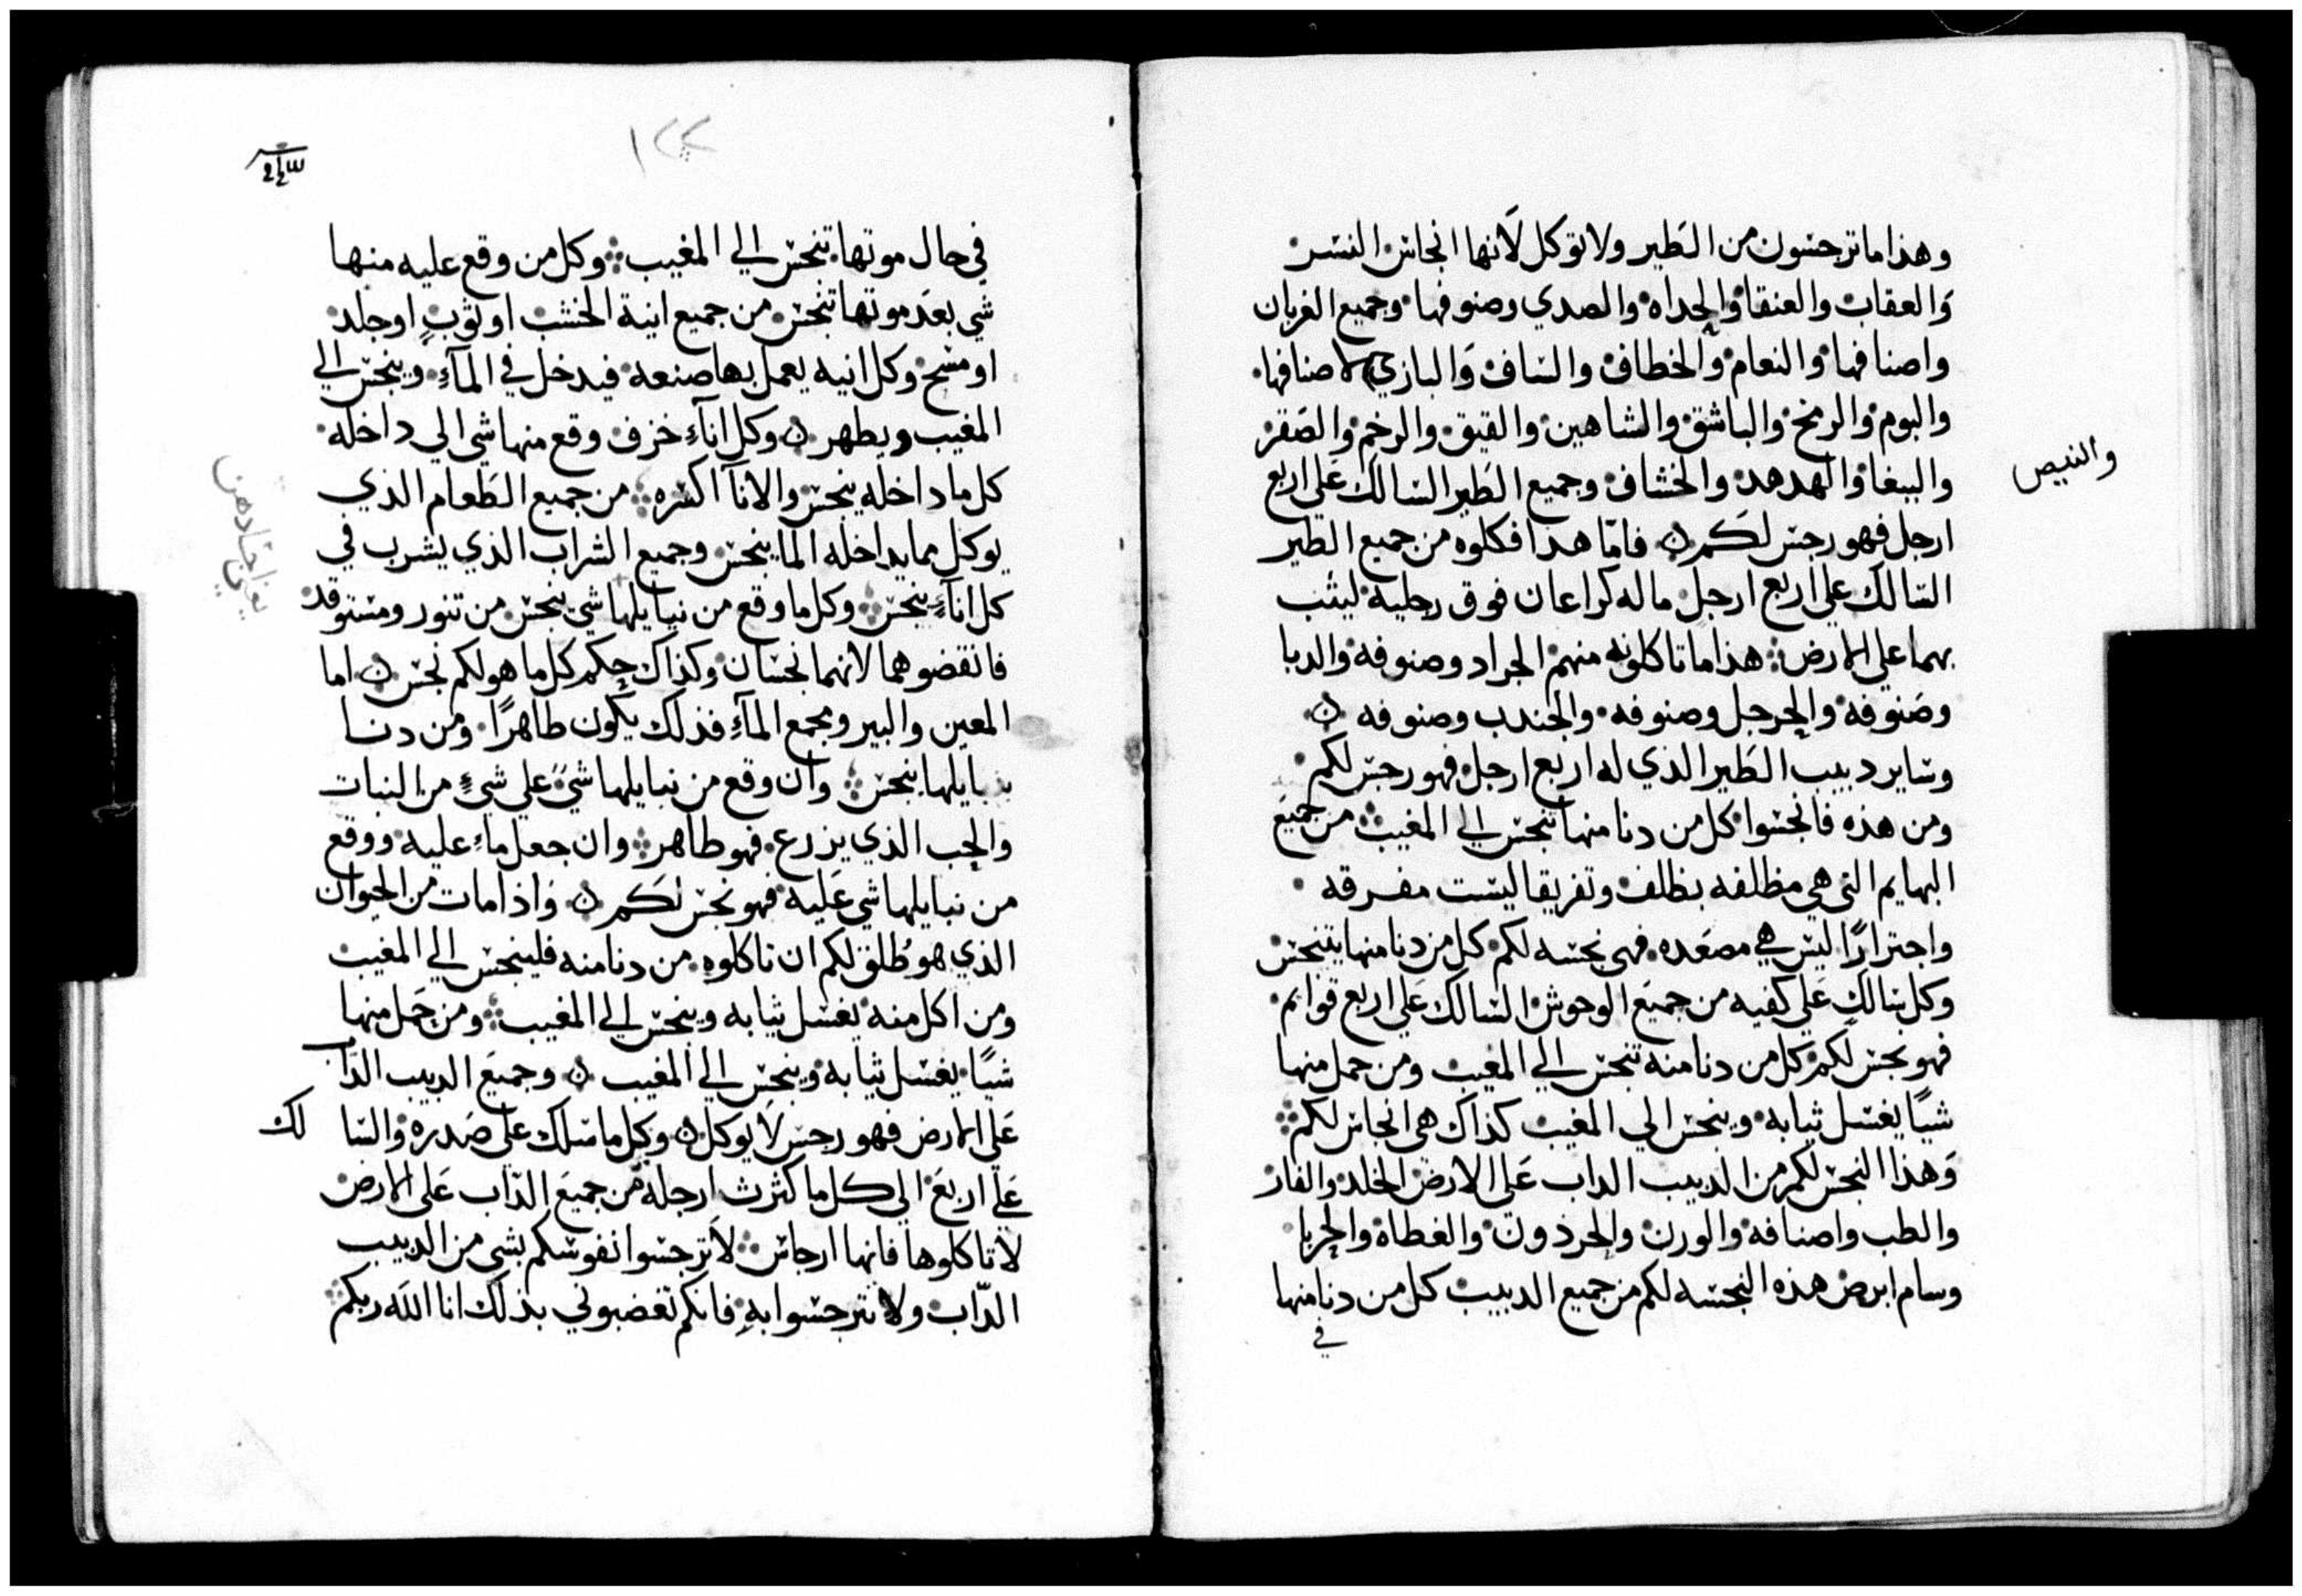 وهذا ما ترجسون من الطَير ولا توكل لَانها انجاس النسر
وَالعقاب والعنقا والحداه والصدي وصنوفها وجميع الغربان
واصنافها والنعام والخطاف والساف وَالبازي لاصنافها
والبوم والرمخ والباشق والشاهين والقيق والرخم والصَقر
والببغا والهدهد والخشاف وجميع الطَير السالك عَلى اربع
والنبيص
ارجل فهو رجس لكَم ن فامّا هذا فكلوه من جميع الطير
السالك علي اربع ارجل ما له كراعان فوق رجليه ليثب
بهما علي الارض هذا ما تاكلونه منهم الجراد وصنوفه والدبا
وصَنوفه والحرجل وصنوفه والجندب وصنوفه ن
وساير دبيب الطَير الذي له اربع ارجل فهو رجس لكم
ومن هذه فانجسوا كل من دنا منها تنجس الي المغيب من جميعَ
البهايم التي هي مظلفه بظلف وتفريقا ليست مفرقه
واجترارًا ليس هي مصَعده فهى نجسه لكم كل من دنا منها يتنجس
وكل سالكٍ عَلي كفيه من جميعَ الوحوش السالك عَلي اربع قوايم
فهو نجس لكم كل من دنا منه تنجس الي المغيب ومن حمل منها
شيًا يغسل ثيابه وينجس الي المغيب كذاك هى انجاس لكم
وَهذا النجس لكم من الدبيب الداب عَلى الارض الخلد والفار
والطب واصنافه والورن والحرذون والغطاة والحربا
وسام ابرص هذه النجسه لكم من جميع الدبيب كل من دنا منها
في
١٢٢
في حال موتها تنجس الي المغيب وكل من وقع عليه منها
شي بعَد موتها تنجس من جميع انية الخشب او ثوبٍ او جلد
او مسح وكل انيه يعمل بها صنعه فيدخل في المآءِ وينجس الي
المغيب ويطهر ن وكل انآءِ خزف وقع منها شي الي داخله
كل ما داخله ينجس والانآ اكسره من جميع الطَعام الذي
يوكل مما يداخله الما ينجس وجميع الشراب الذي يشرب في
كل انآءٍ ينجس وكل ما وقع من نبايلها شي ينجس من تنور ومستوقد
فانقضوهما لانهما نجسان وكذاك حكم كل ما هو لكم نجس ن اما
المعين والبير ومجمع المآءِ فذلك يكون طاهرًا ومن دنا
بنبايلها ينجس وان وقع من نبايلها شيً علي شيءٍ من النبات
والحب الذي يزرع فهو طاهر وان جعل ماءِ عليه ووقع
من نبايلها شي عَليه فهو نجس لكَم ن واذا مات من الحيوان
الذي هو طُلق لكم ان تاكلوه من دنا منه فلينجس الي المغيب
ومن اكل منه يغسل ثيابه وينجس الي المغيب ومن حَمل منها
شيًا يغسل ثيابه وينجس الي المغيب ن وجميعَ الدبيب الدَاب
عَلي الارض فهو رجس لا يوكل ن وكل ما سلك على صَدره والسا لك
عَلي اربعَ الى كل ما كثرث ارجله من جميعَ الدّاب عَلى الارض
لا تاكلوها فانها ارجاس لَا ترجسوا نفوسكم بشي من الدبيب
الدّاب ولا تترجسوا بهِ فانكم تغضبوني بذلك انا اللَه ربكم